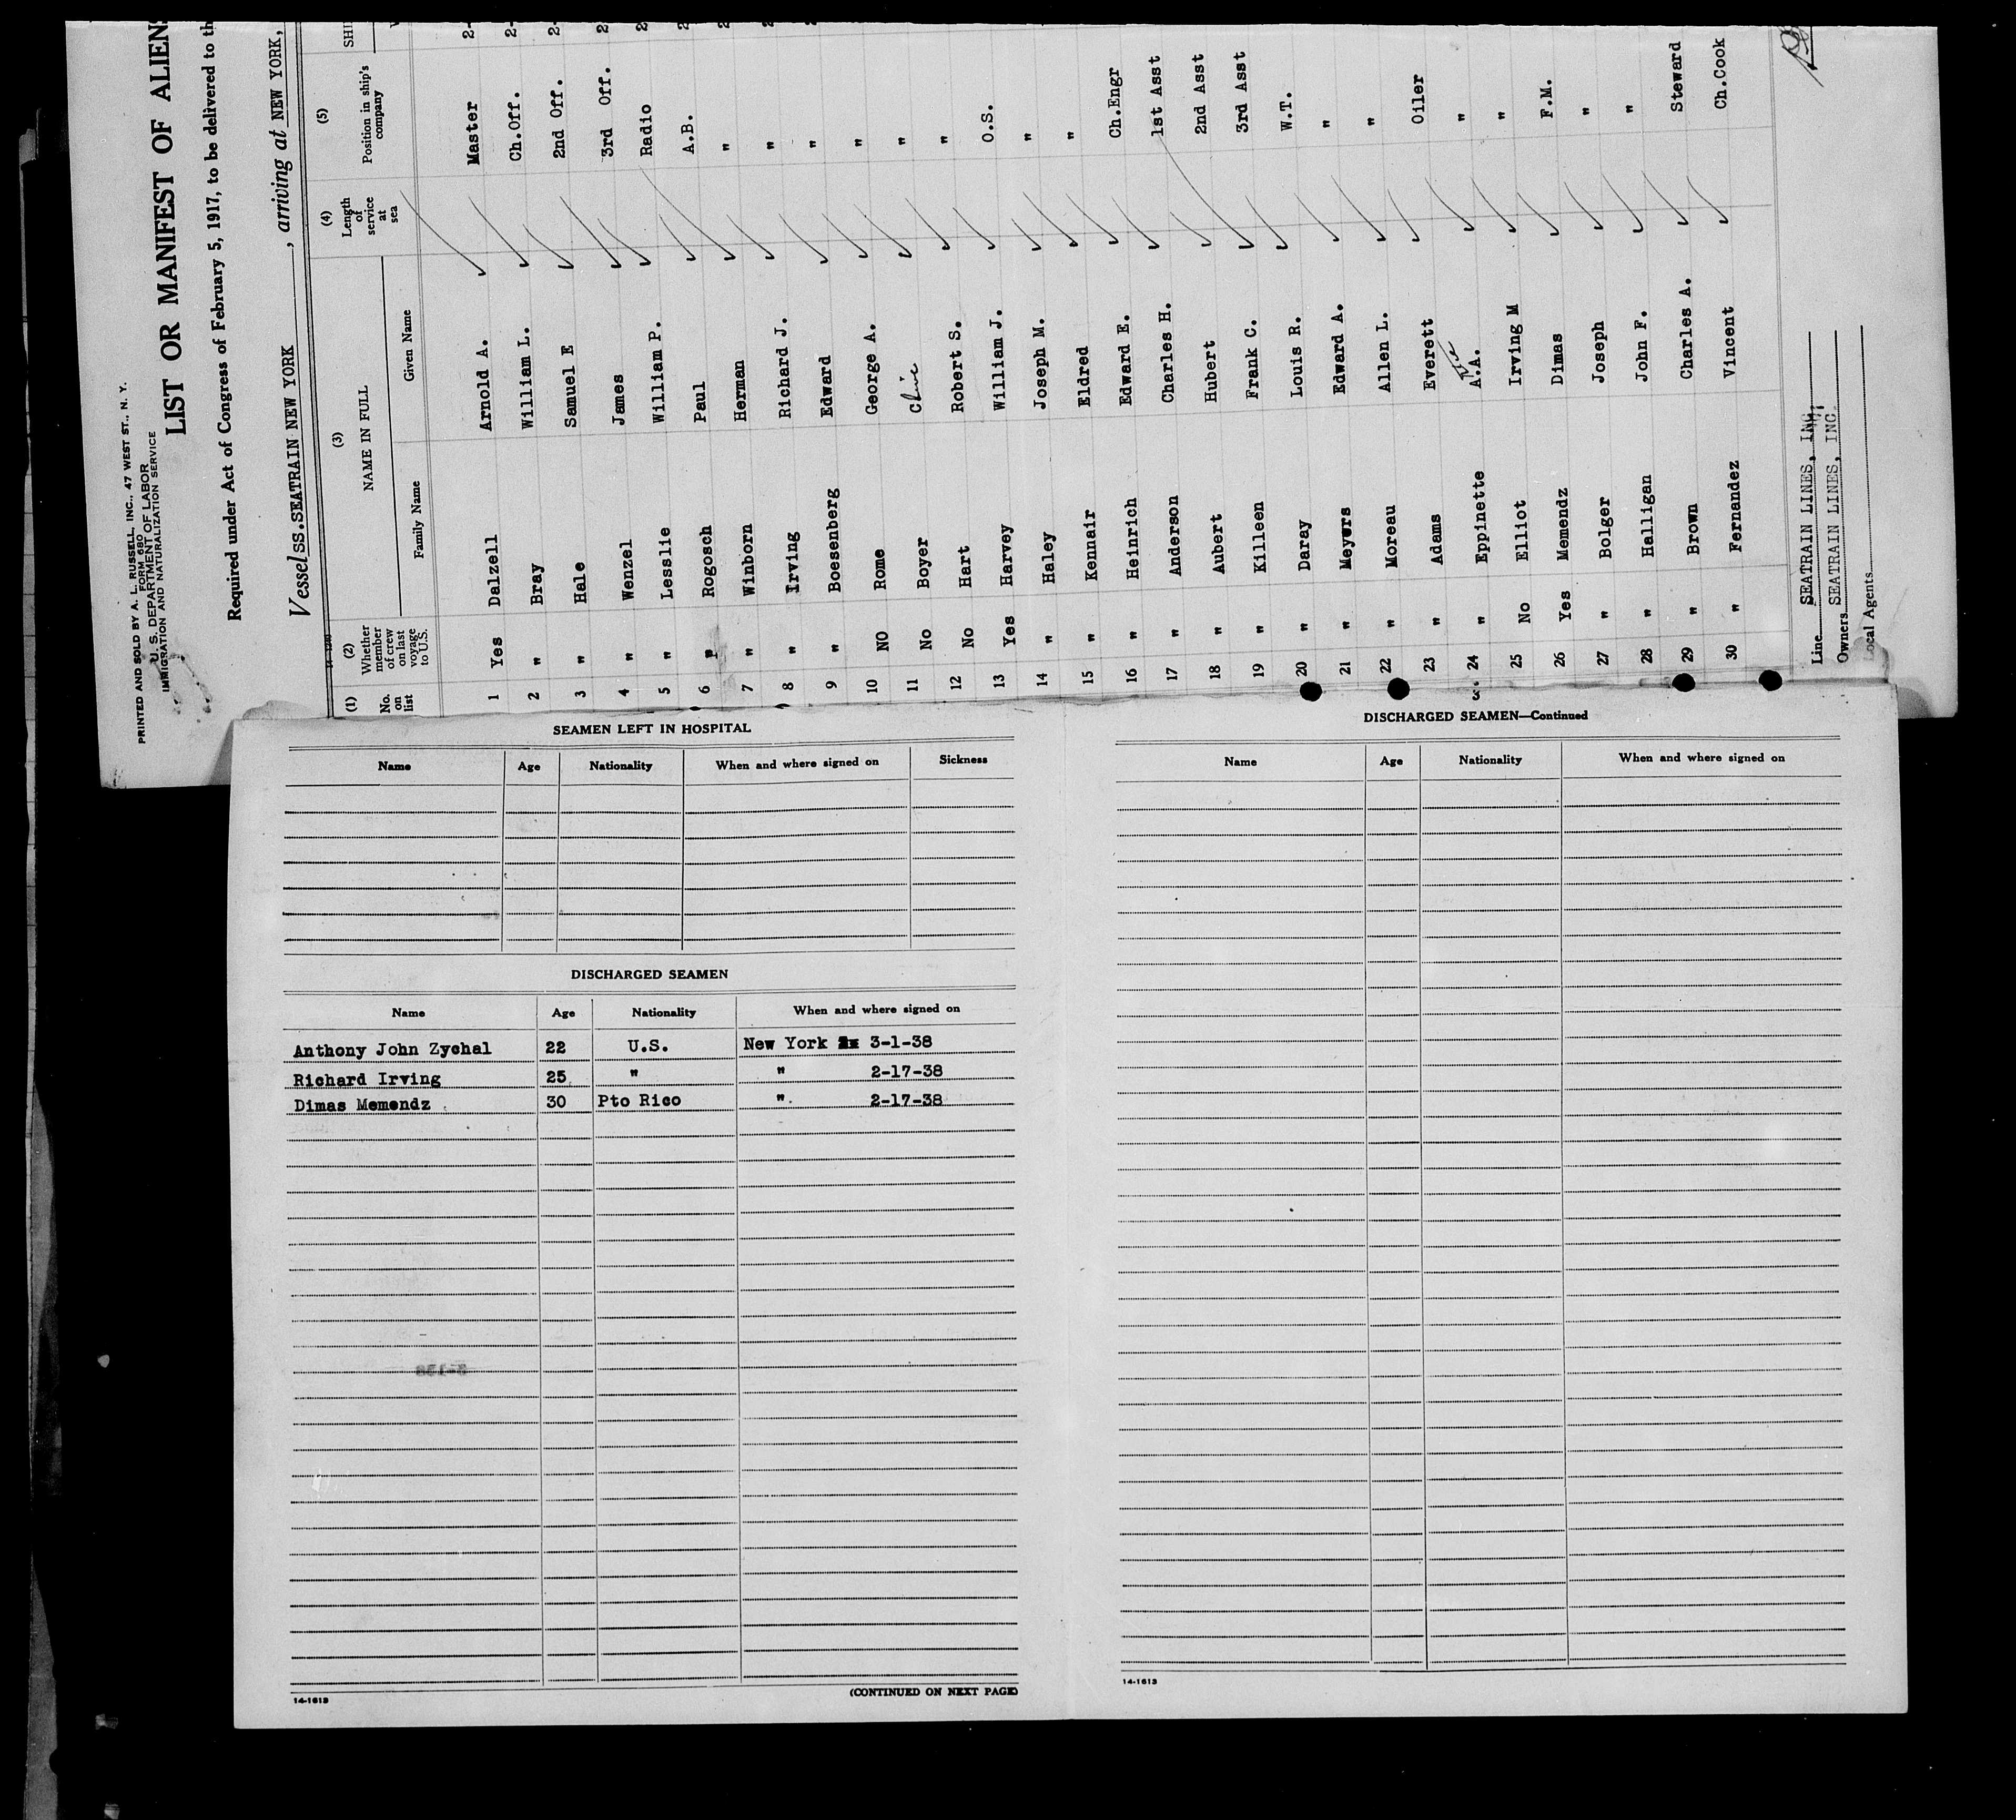 PRINTED AND SOLD BY A. L. RUSSELL, INC., 47 WEST ST., N. Y.
FORM 680
U. S. DEPARTMENT OF LABOR
IMMIGRATION AND NATURALIZATION SERVICE
LIST OR MANIFEST OF ALIENS
Required under Act of Congress of February 5, 1917, to be delivered to th
Vessel SS.SEATRAIN NEW YORK , arriving at NEW YORK,
(1) No. on list (2) Whether member of crew on last voyage to U.S. (3) NAME IN FULL (4) Length of service at sea (5) Position in ship's company SHI
Family Name Given Name
1 Yes Dalzell Arnold A. Master 2-
2 " Bray William L. Ch.Off. 2-
3 " Hale Samuel E 2nd Off. 2-
4 " Wenzel James 3rd Off. 2
5 " Lesslie William P. Radio 2
6 " Rogosch Paul A.B. 2
7 " Winborn Herman " 2
8 " Irving Richard J. " 2
9 " Boesenberg Edward " 2
10 NO Rome George A. "
11 No Boyer Clive "
12 No Hart Robert S. "
13 Yes Harvey William J. O.S.
14 " Haley Joseph M. "
15 " Kennair Eldred "
16 " Heinrich Edward E. Ch.Engr
17 " Anderson Charles H. 1st Asst
18 " Aubert Hubert 2nd Asst
19 " Killeen Frank C. 3rd Asst
20 " Daray Louis R. W.T.
21 " Meyers Edward A. "
22 " Moreau Allen L. "
23 " Adams Everett Oiler
24 " Eppinette A.A. "
25 No Elliot Irving M "
26 Yes Memendz Dimas F.M.
27 " Bolger Joseph "
28 " Halligan John F. "
29 " Brown Charles A. Steward
30 " Fernandez Vincent Ch.Cook
Line SEATRAIN LINES, INC.
Owners SEATRAIN LINES, INC.
Local Agents
SEAMEN LEFT IN HOSPITAL
Name Age Nationality When and where signed on Sickness
DISCHARGED SEAMEN
Name Age Nationality When and where signed on
Anthony John Zychal 22 U.S. New York 3-1-38
Richard Irving 25 " " 2-17-38
Dimas Memendz 30 Pto Rico " 2-17-38
14-1613
(CONTINUED ON NEXT PAGE)
DISCHARGED SEAMEN—Continued
Name Age Nationality When and where signed on
14-1613